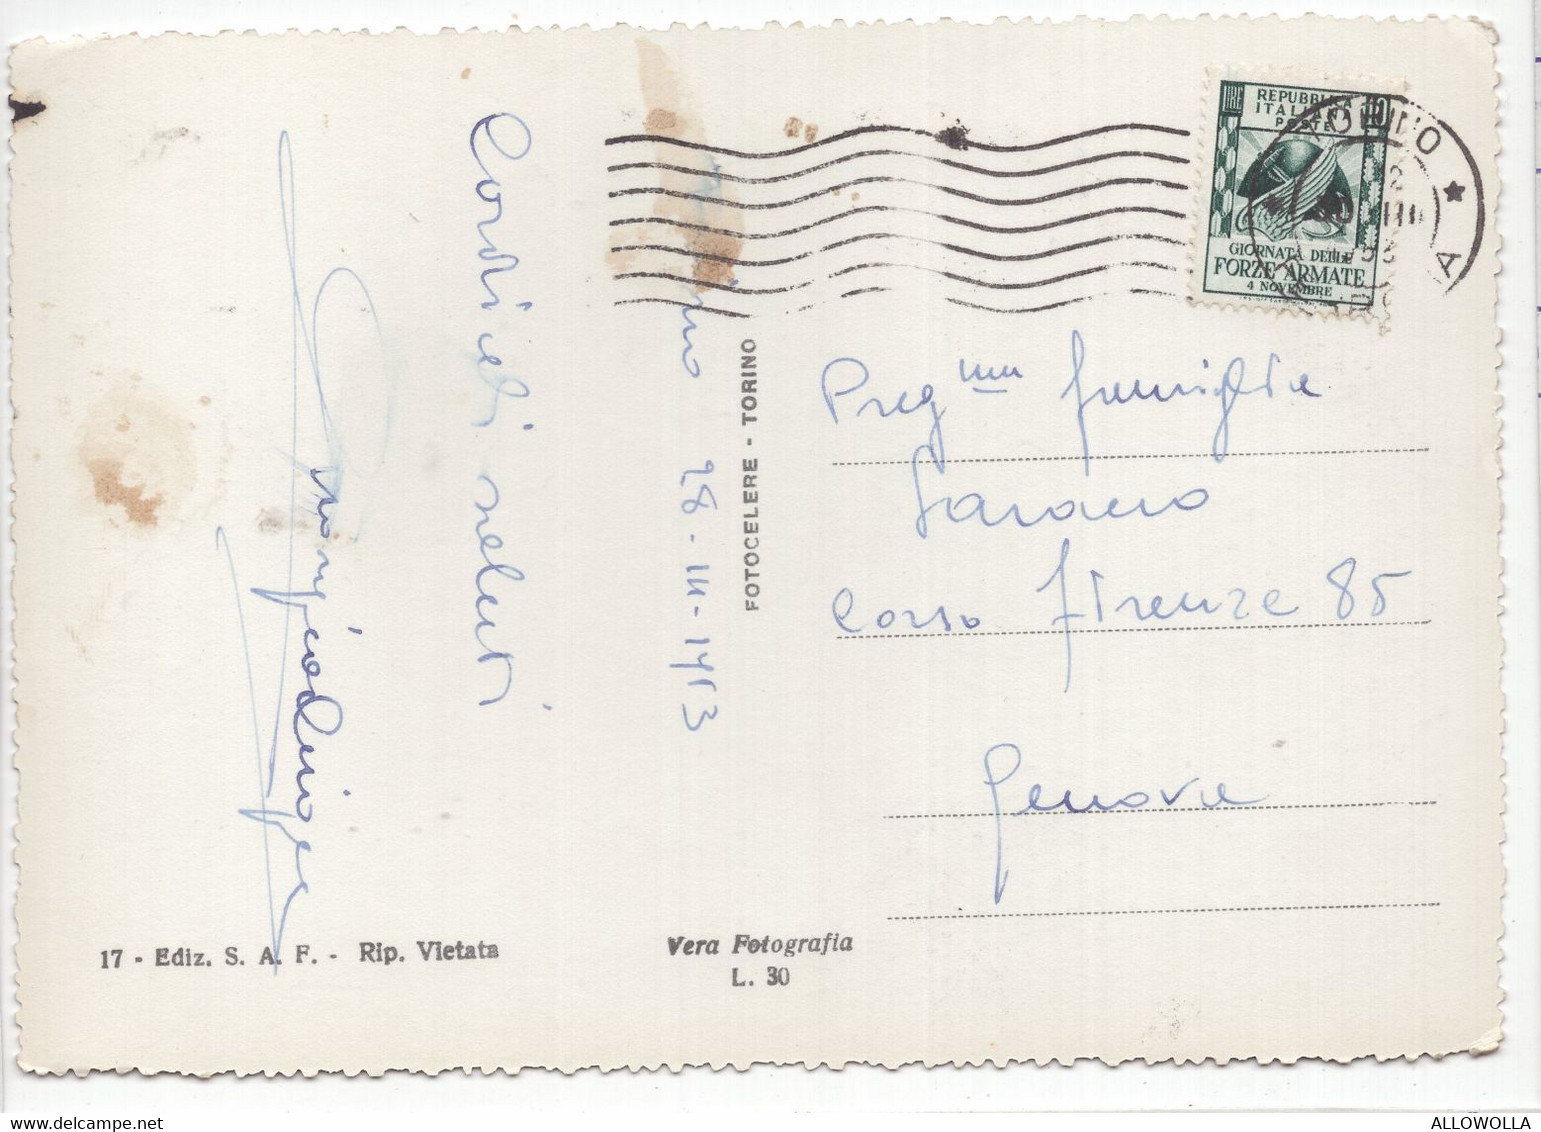 Cordiali saluti
28 - III - 1953
FOTOCELERE - TORINO
17 - Ediz. S. A. F. - Rip. Vietata
Vera Fotografia
L. 30
REPUBBLICA
ITALIANA
POSTE
LIRE
10
GIORNATA DELLE
FORZE ARMATE
4 NOVEMBRE
TORINO
Preg.ma famiglia
Saracco
Corso Firenze 85
Genova
ALLOWOLLA
www.delcampe.net